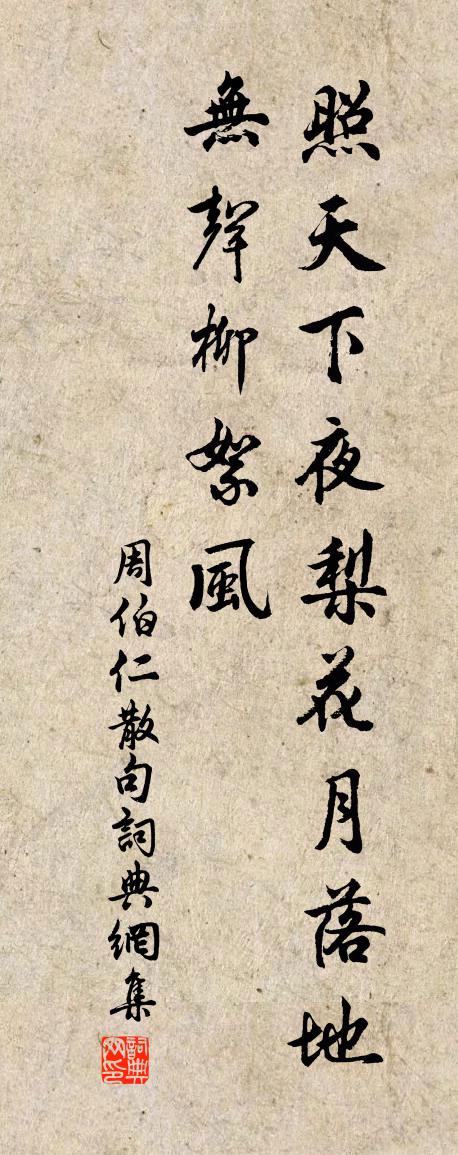 照天下夜梨花月落地
無聲柳絮風
周伯仁散句詞典網集
詞典網印